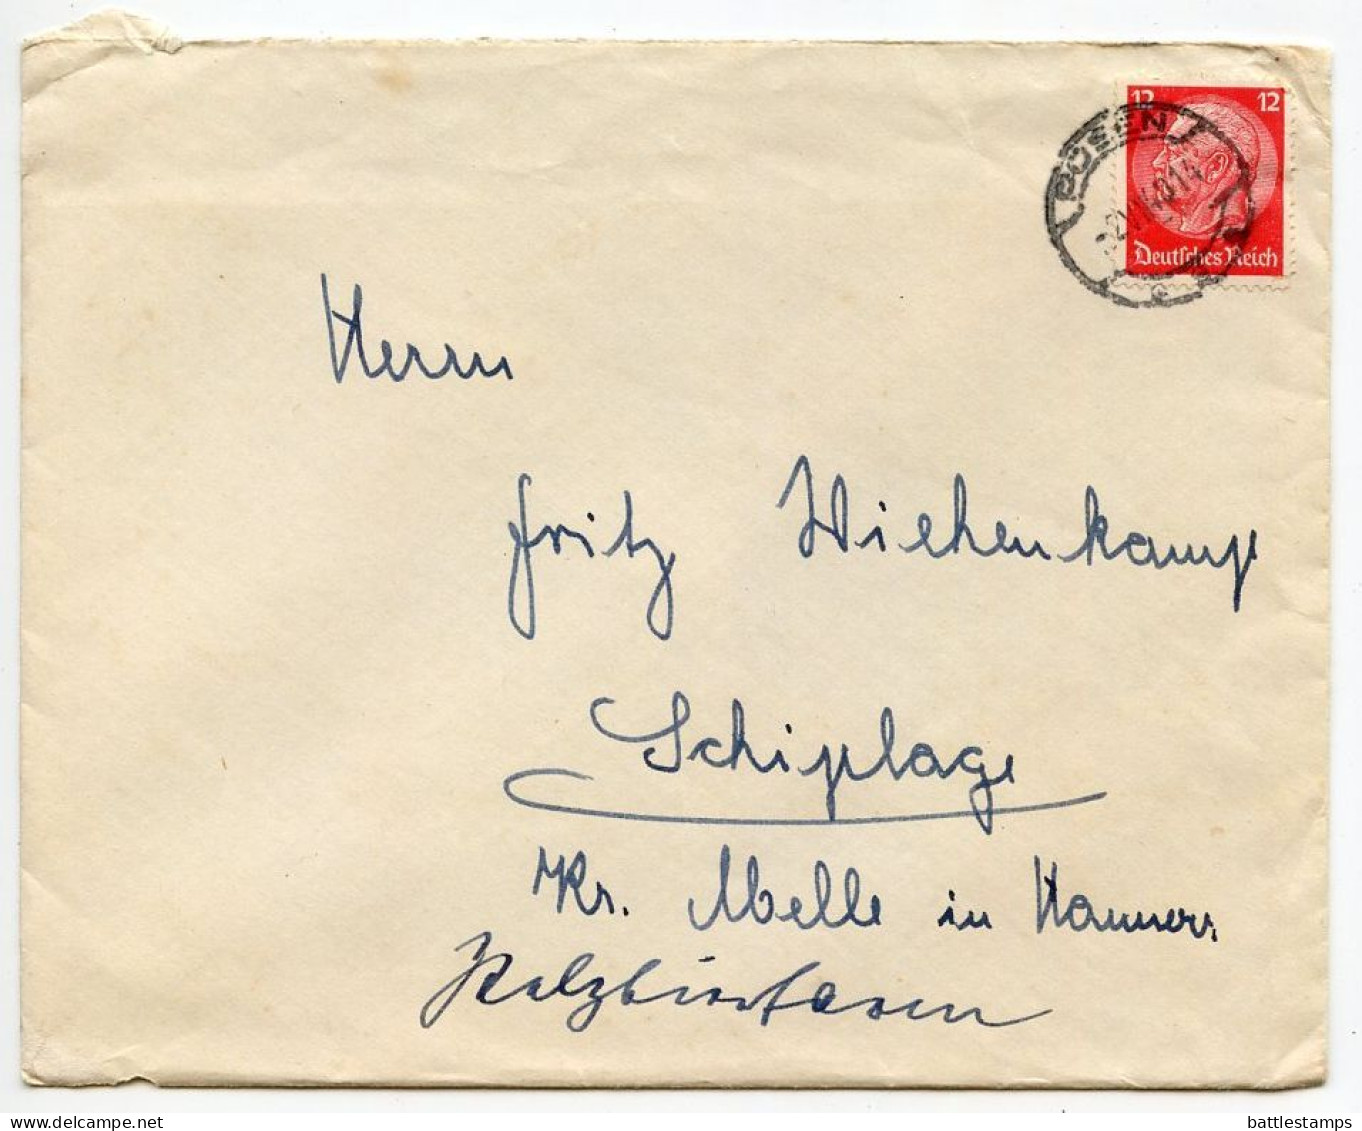 12 12
POSEN
Deutsches Reich
c
Herrn
Fritz Wiehenkamp
Schiplage
Kr. Melle in Hannov.
www.delcampe.net
battlestamps